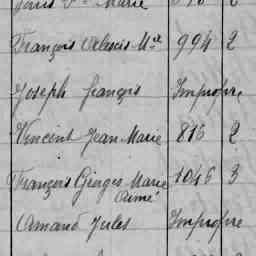 Marie
François Alexis Mie 994 2
Joseph François Impropre
Vincent Jean Marie 816 2
François Giorges Marie 1046 3
Aimé
Amand Jules Impropre